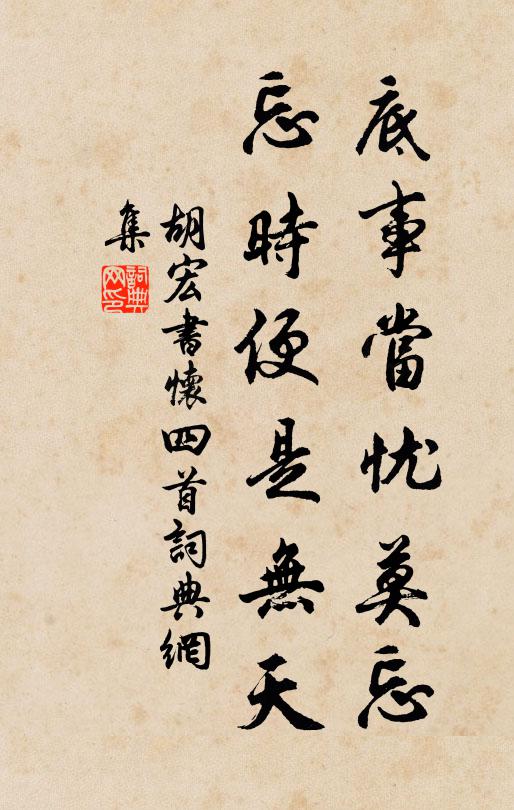 底事當忧莫忘
忘時便是無天
胡宏書懷四首詞典網
集
詞典网印